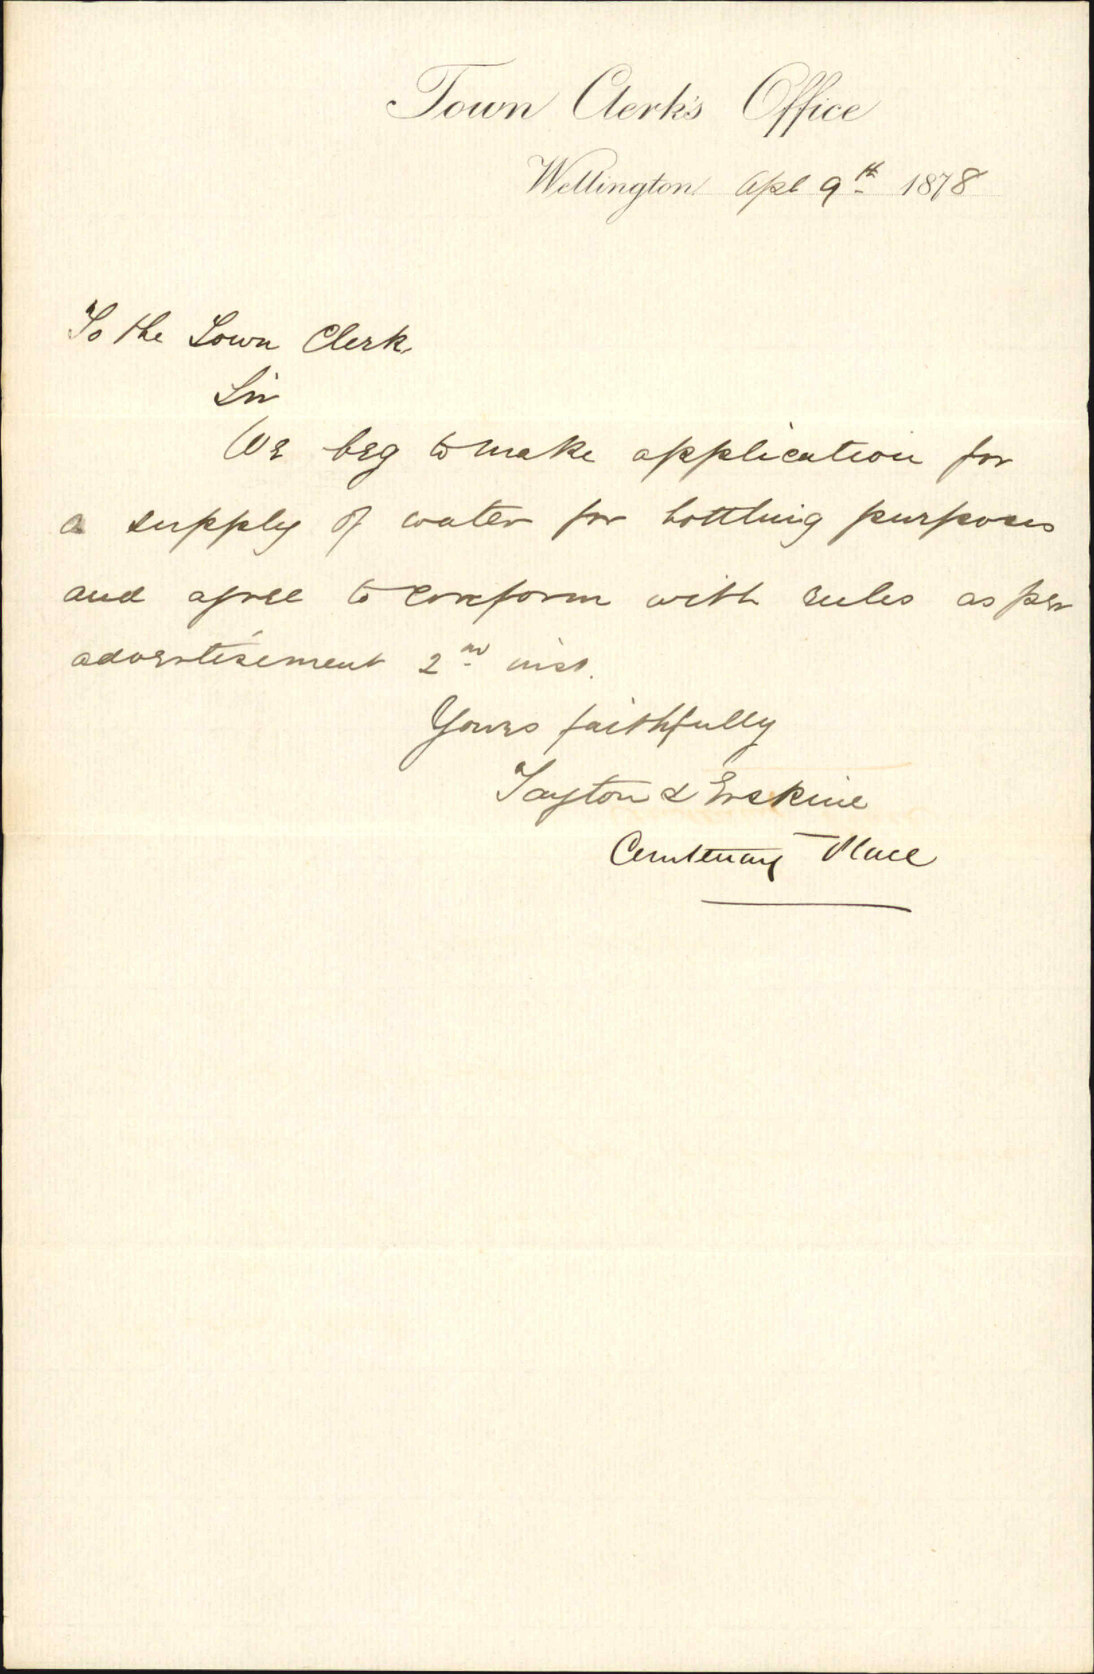 Town Clerk's Office
Wellington Apl 9th 1878
To the Town Clerk
Sir
We beg to make application for
a supply of water for bottling purposes
and agree to conform with rules as per
advertisement 2nd inst.
Yours faithfully
& Erskine
Place